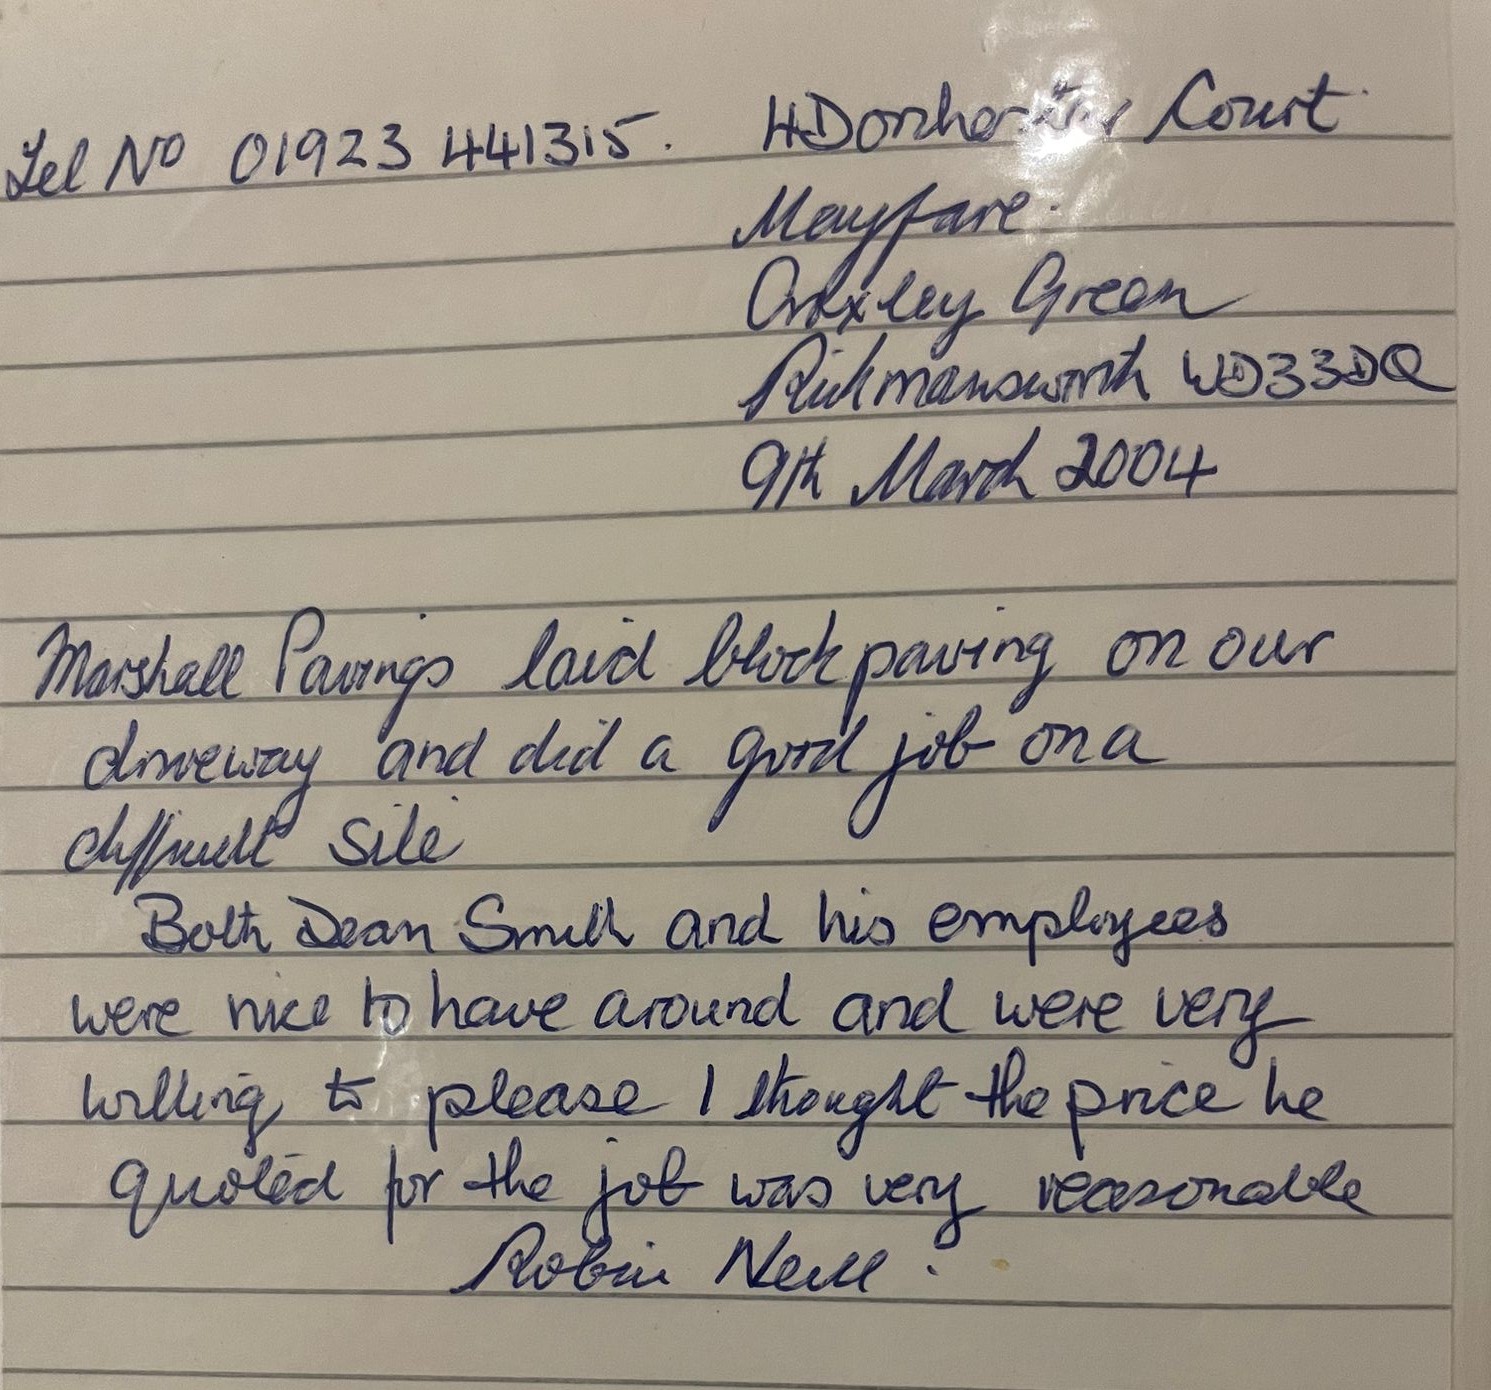 Tel No 01923 441315. 4 Dorchester Court
Mayfare.
Croxley Green
Rickmansworth WD3 3DQ
9th March 2004
Marshall Pavings laid block paving on our
driveway and did a good job on a
difficult site
Both Dean Smith and his employees
were nice to have around and were very
willing to please I thought the price he
quoted for the job was very reasonable
Robin Neill.